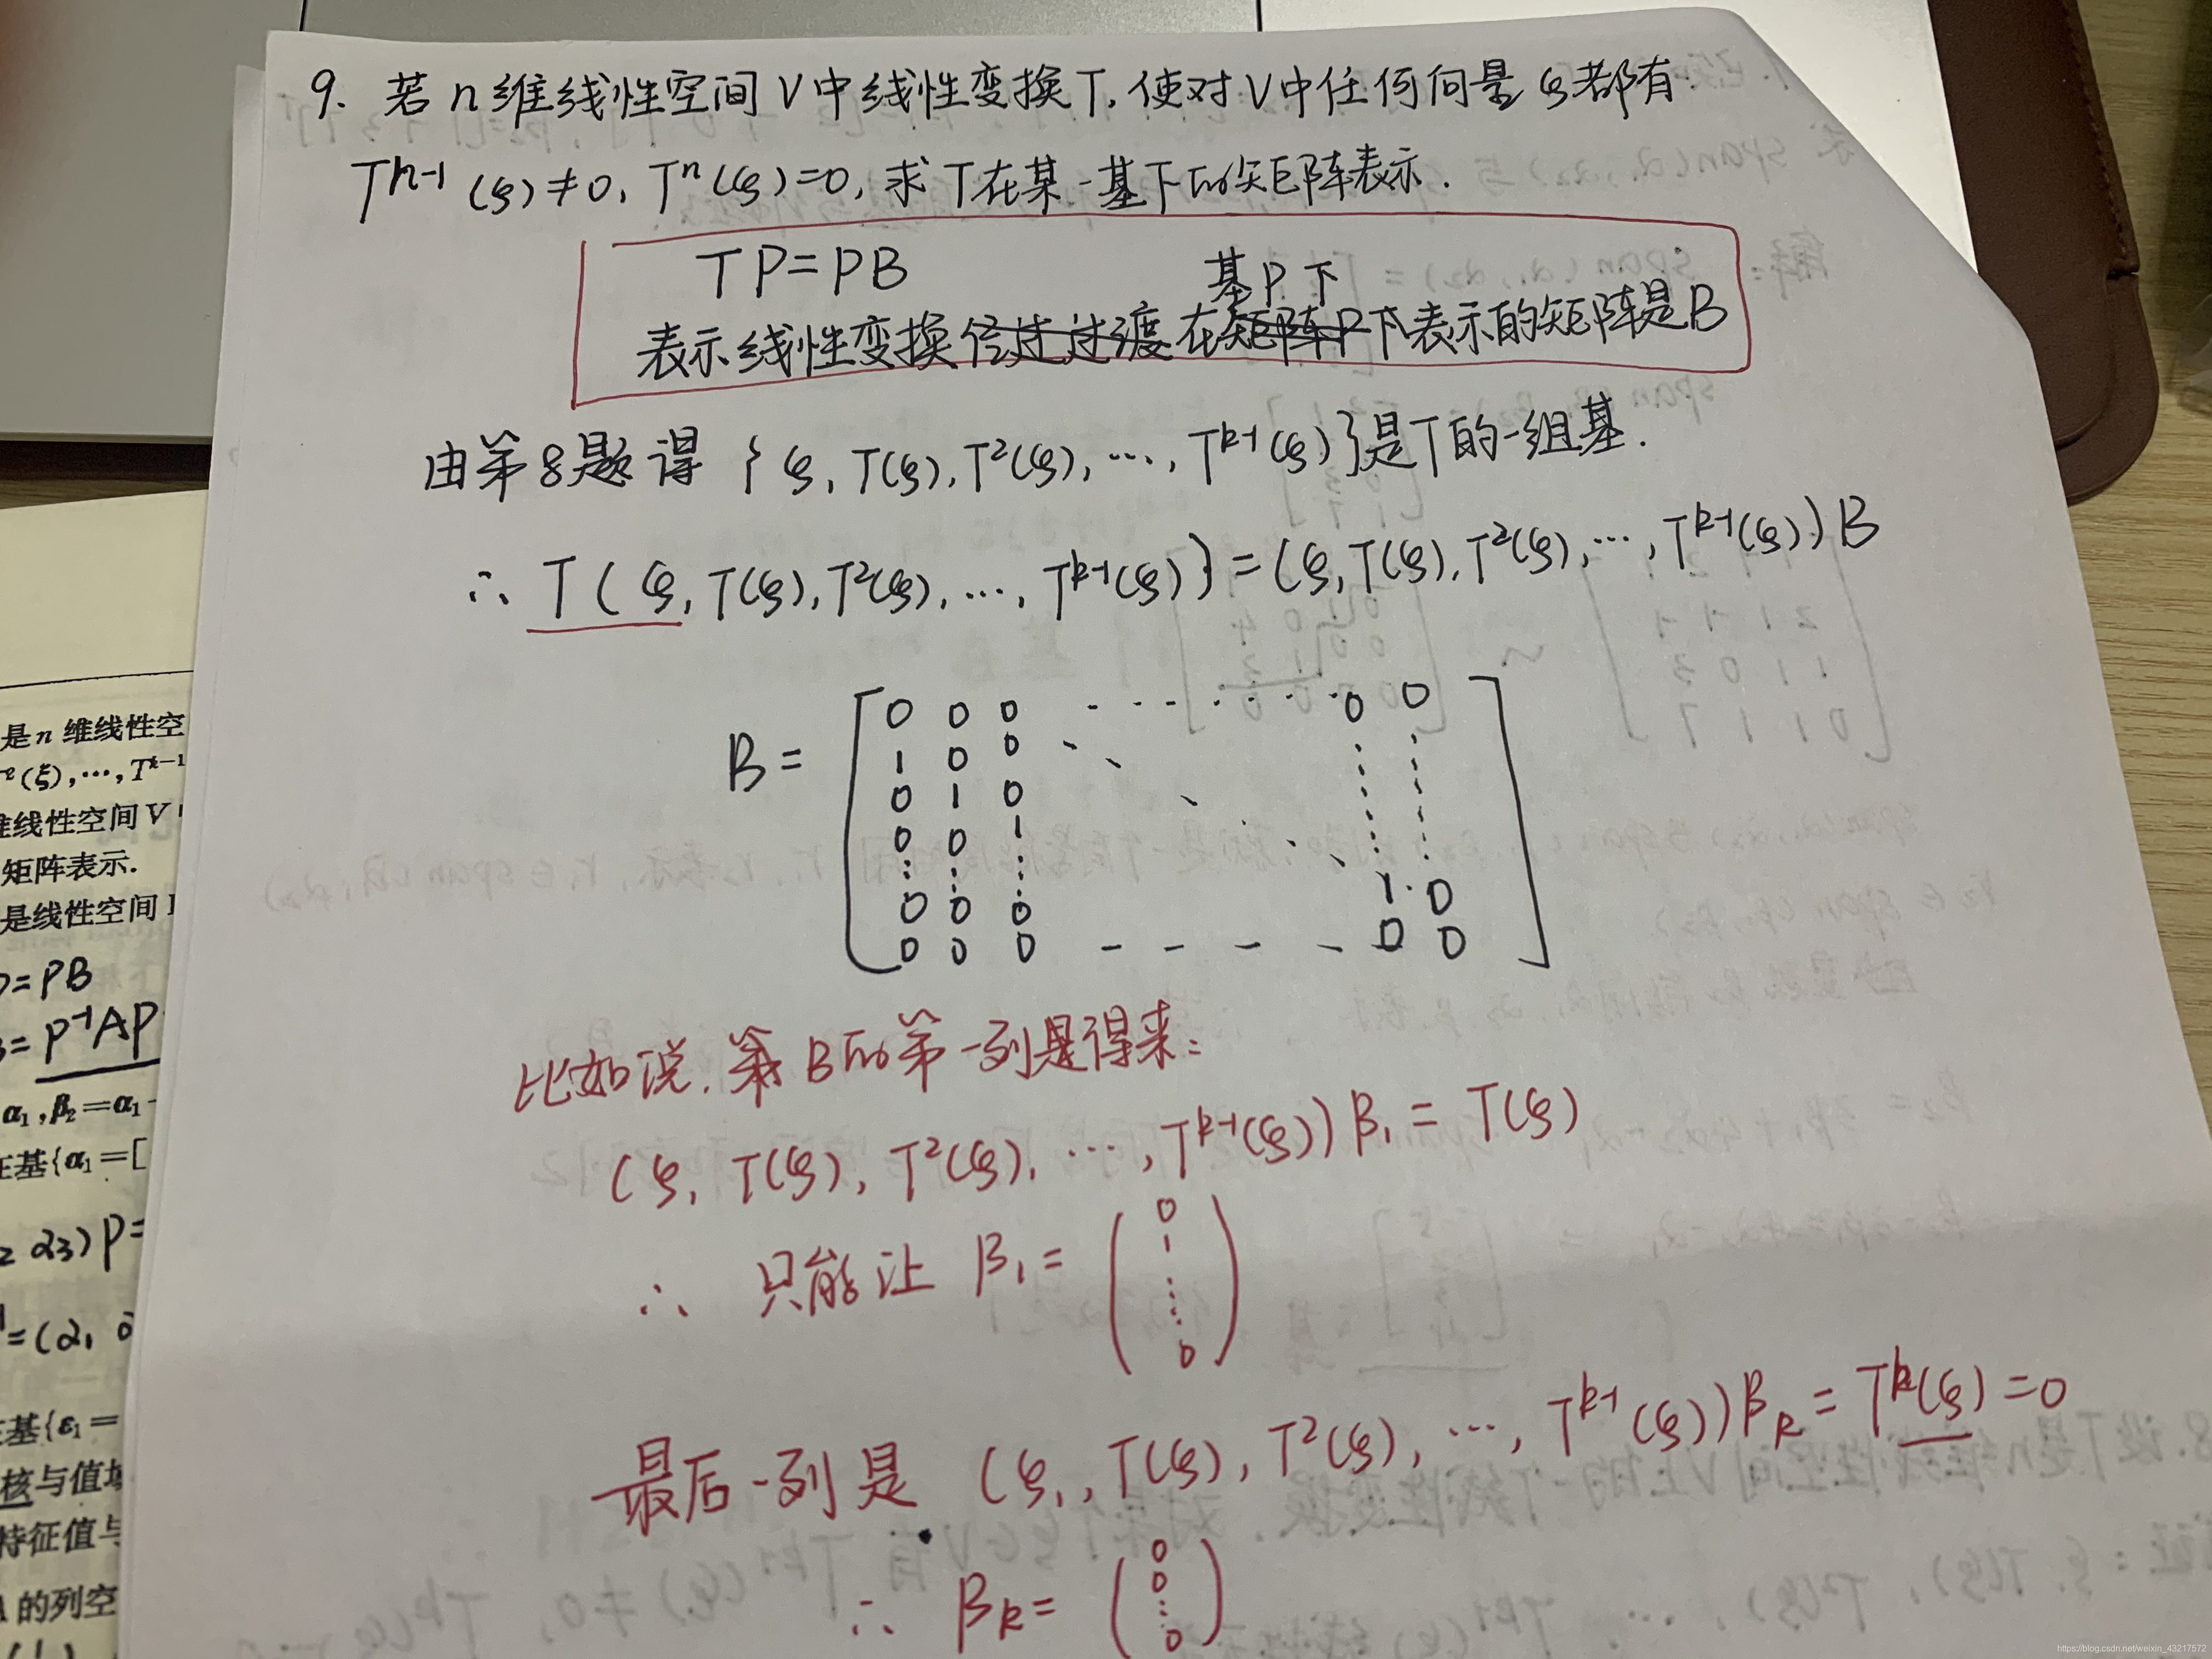 9. 若n维线性空间V中线性变换T,使对V中任何向量ξ都有
T^{n-1}(ξ)≠0, T^n(ξ)=0,求T在某一基下的矩阵表示.
TP=PB
基P下
表示线性变换经过过渡在矩阵P下表示的矩阵是B
由第8题得 {ξ, T(ξ), T²(ξ), …, T^{k-1}(ξ)}是T的一组基.
∴ T(ξ, T(ξ), T²(ξ), …, T^{k-1}(ξ)) = (ξ, T(ξ), T²(ξ), …, T^{k-1}(ξ))B
B =
0 0 0 ······ 0 0
1 0 0
0 1 0
0 0 1
0 0 0 1 0
0 0 0 ---- 0 0
比如说,第B的第一列是得来:
(ξ, T(ξ), T²(ξ), …, T^{k-1}(ξ))β₁ = T(ξ)
∴ 只能让 β₁ = (0 1 ⋮ 0)
最后一列是 (ξ₁, T(ξ), T²(ξ), …, T^{k-1}(ξ))β_k = T^k(ξ) = 0
∴ β_k = (0 0 ⋮ 0)
是n维线性空
(ξ),…,T^{k-1}
维线性空间V
矩阵表示.
是线性空间
=PB
=P⁻¹AP
α₁,β₂=α₁-
在基{α₁=[
α₃)P=
=(α₁
基{ε₁=
核与值域
特征值与
的列空
https://blog.csdn.net/weixin_43217572